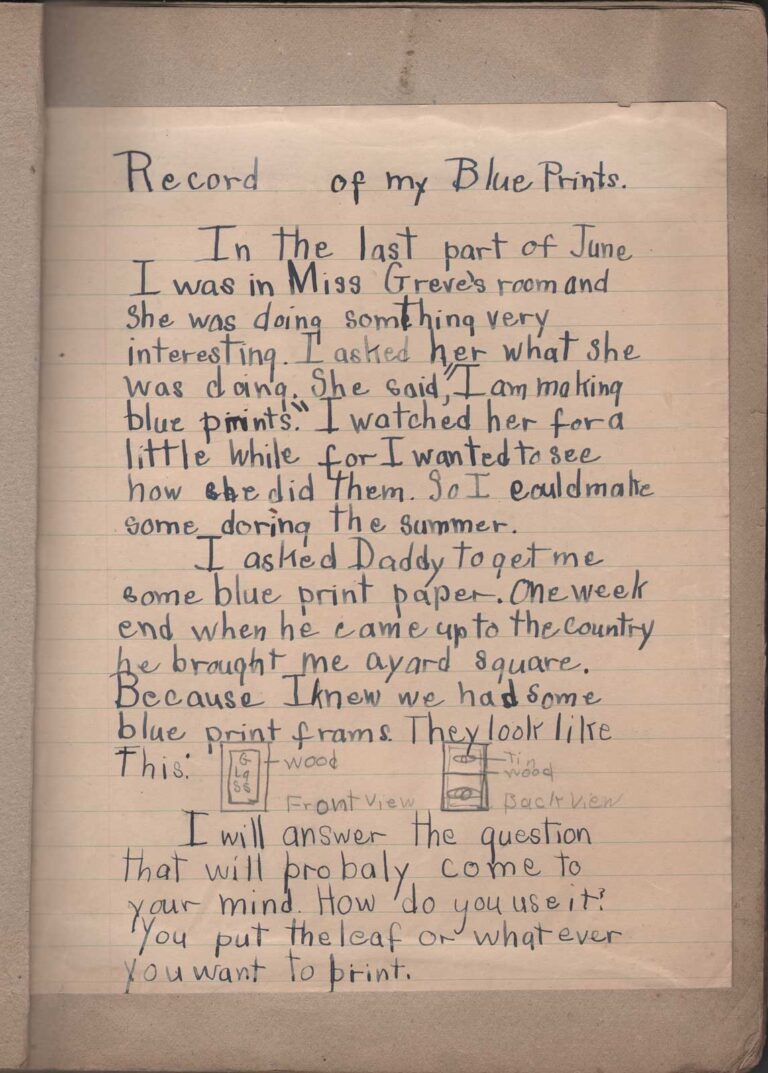 Record of my Blue Prints.
In the last part of June
I was in Miss Greve's room and
she was doing something very
interesting. I asked her what she
was doing. She said, "I am making
blue prints." I watched her for a
little while for I wanted to see
how she did them. So I could make
some doring the summer.
I asked Daddy to get me
some blue print paper. One week
end when he came up to the country
he brought me a yard square.
Because I knew we had some
blue print frams. They look like
this:
G
La
SS
wood
Front View
Tin
wood
Back View
I will answer the question
that will probaly come to
your mind. How do you use it?
You put the leaf or what ever
you want to print.